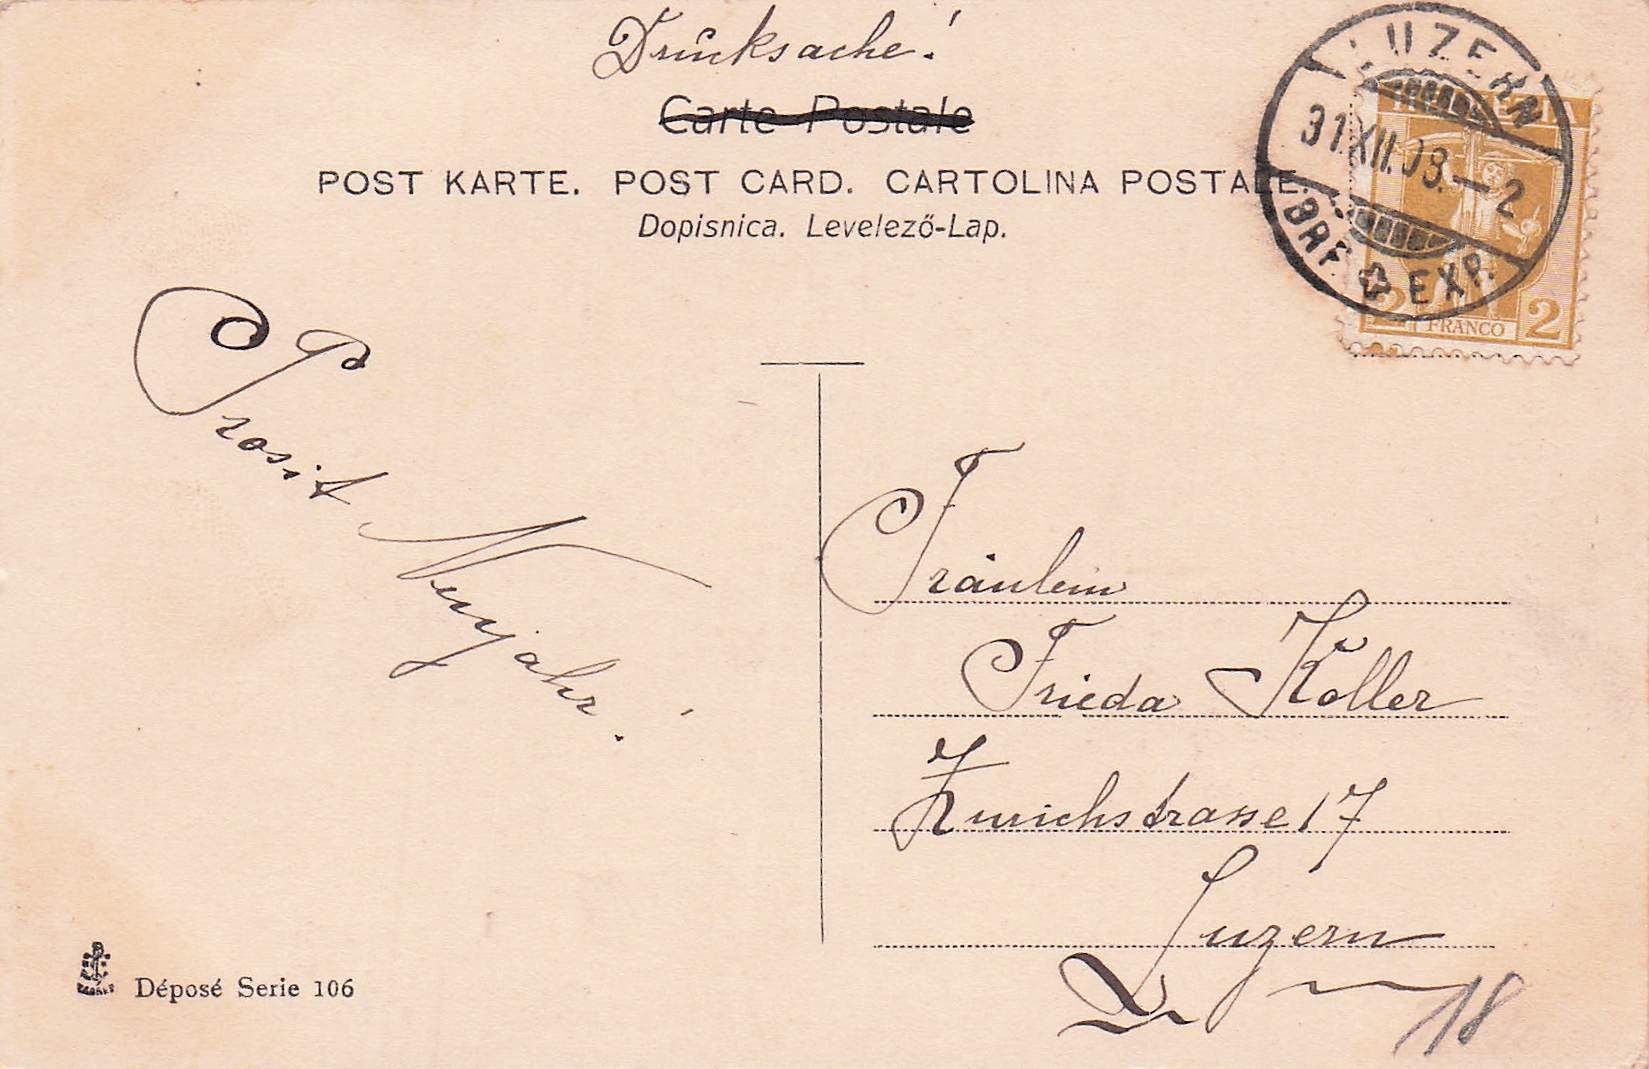 Drucksache!
Carte Postale
POST KARTE. POST CARD. CARTOLINA POSTALE.
Dopisnica. Levelező-Lap.
LUZERN
31.XII.08.–2
BRF. EXP.
HELVETIA
2 FRANCO 2
Prosit
Neujahr!
Fräulein
Frieda Koller
Zürichstrasse 17
Luzern
18
Déposé Serie 106